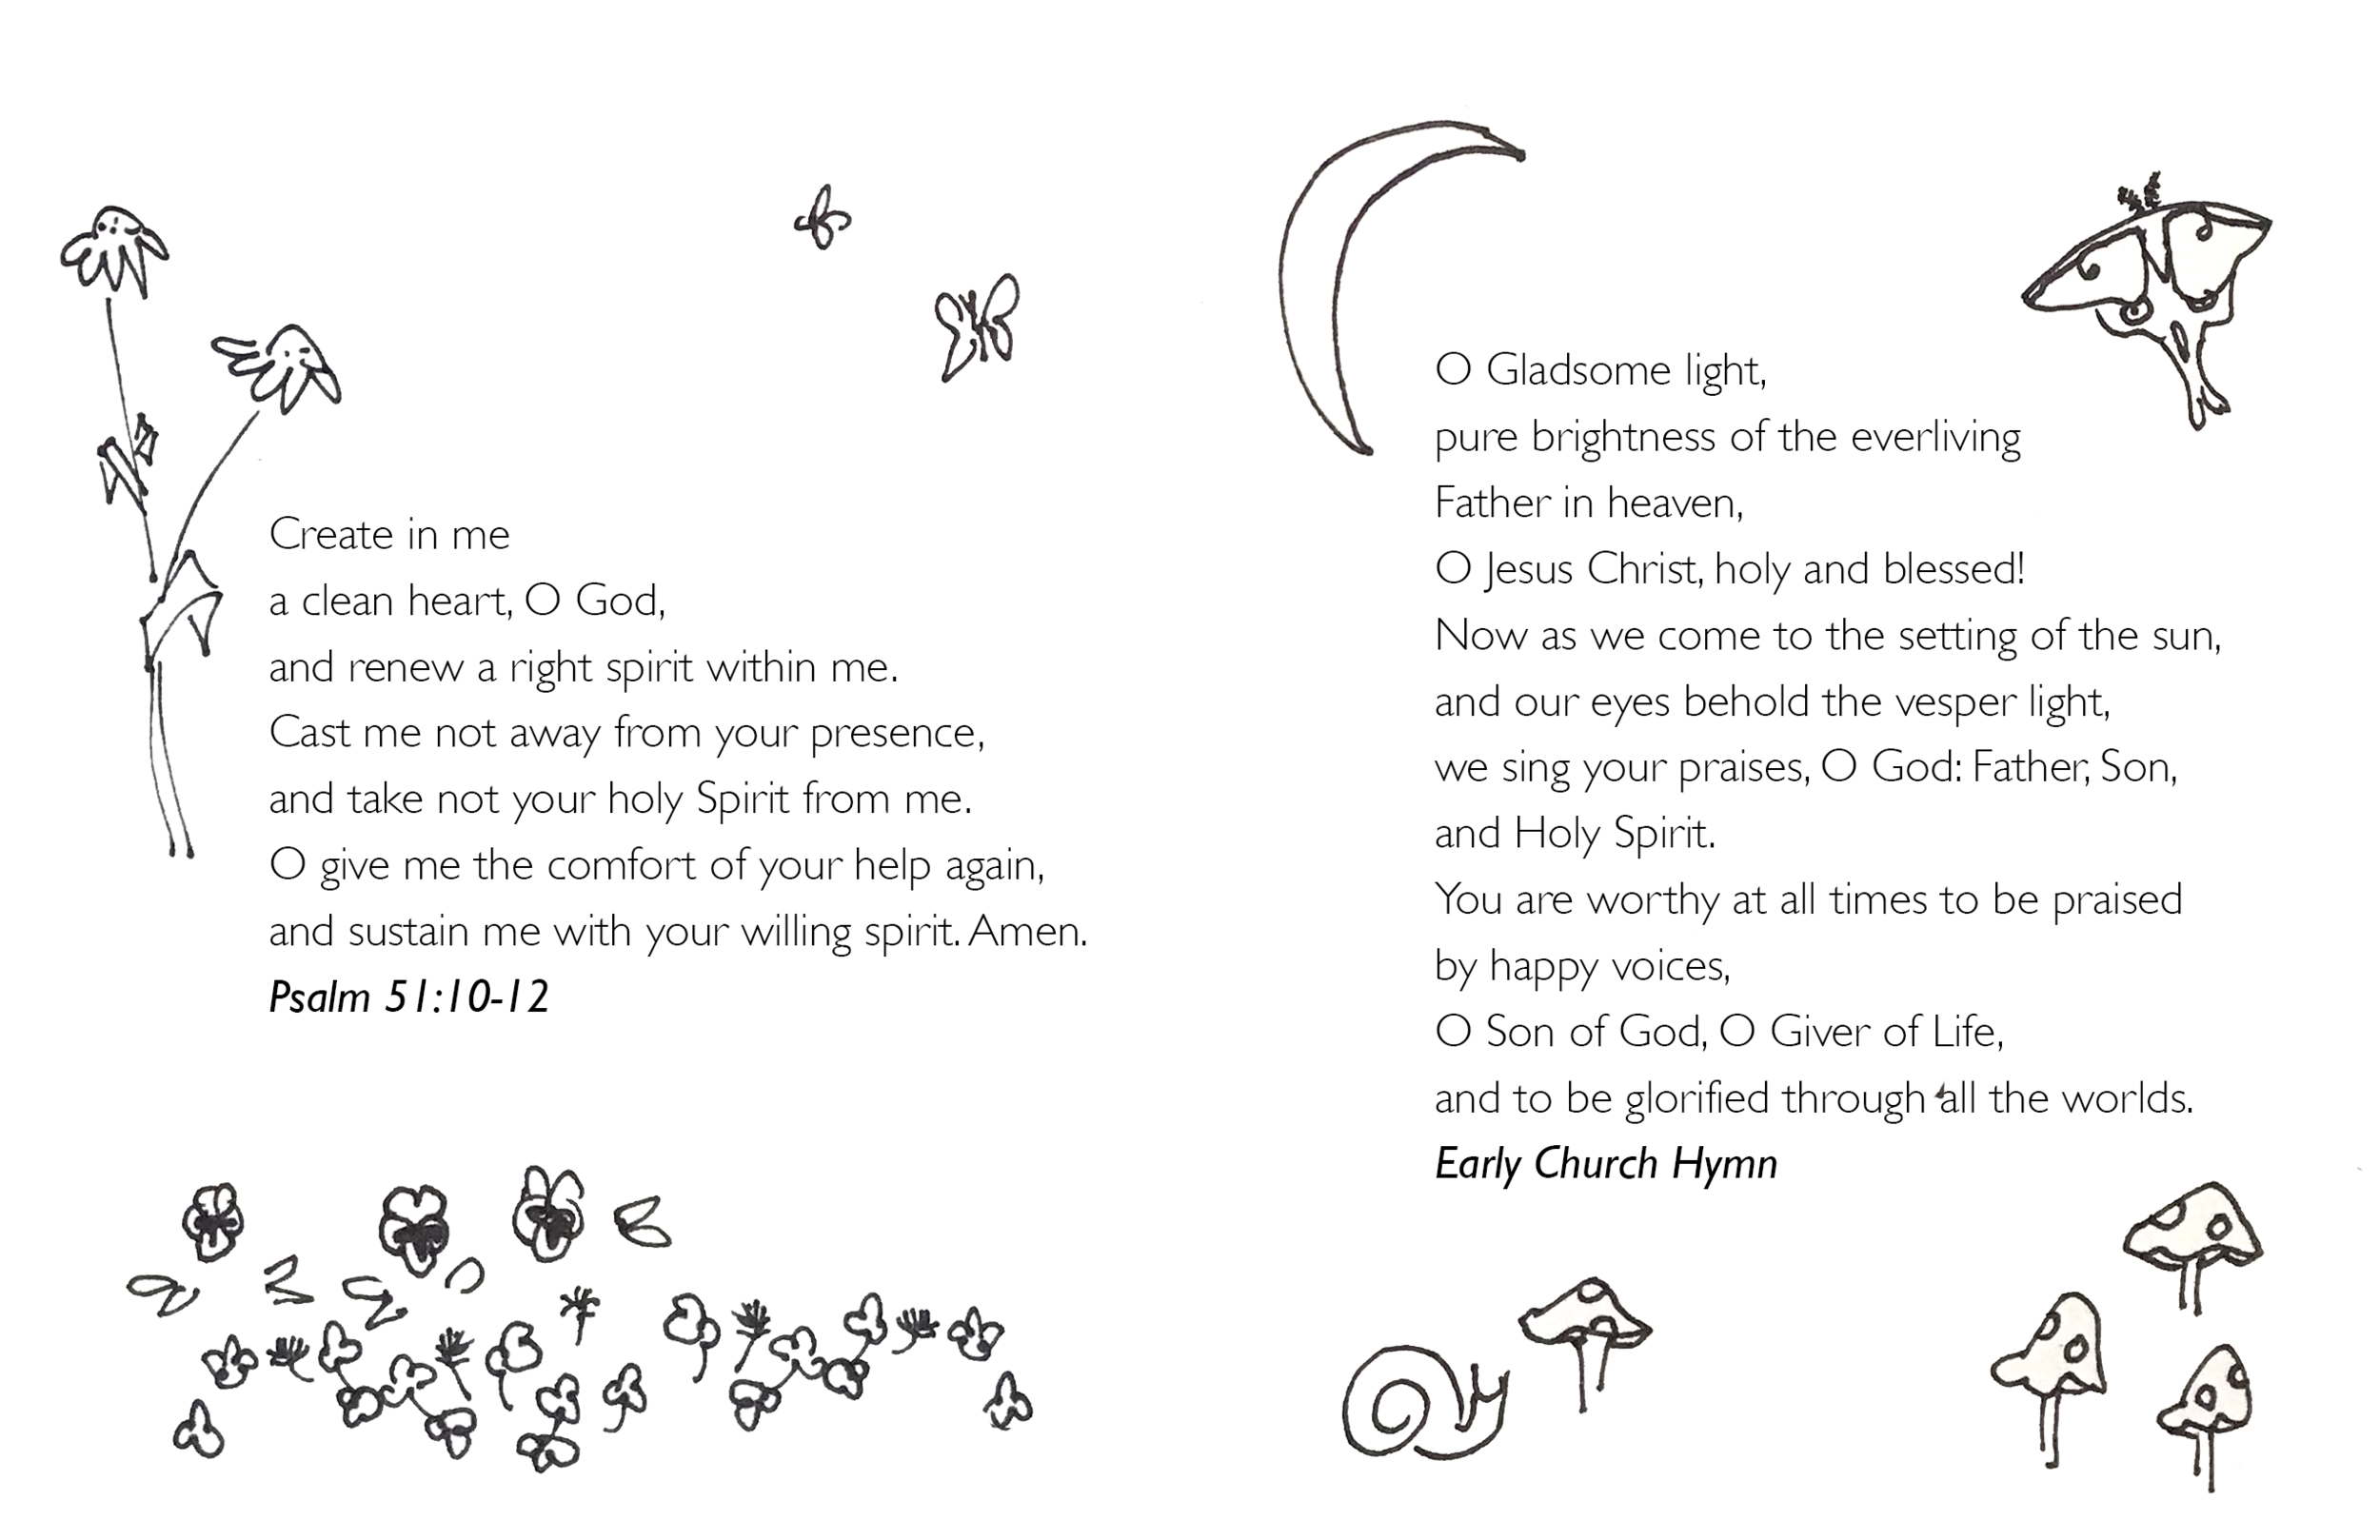 Create in me
a clean heart, O God,
and renew a right spirit within me.
Cast me not away from your presence,
and take not your holy Spirit from me.
O give me the comfort of your help again,
and sustain me with your willing spirit. Amen.
Psalm 51:10-12
O Gladsome light,
pure brightness of the everliving
Father in heaven,
O Jesus Christ, holy and blessed!
Now as we come to the setting of the sun,
and our eyes behold the vesper light,
we sing your praises, O God: Father, Son,
and Holy Spirit.
You are worthy at all times to be praised
by happy voices,
O Son of God, O Giver of Life,
and to be glorified through all the worlds.
Early Church Hymn